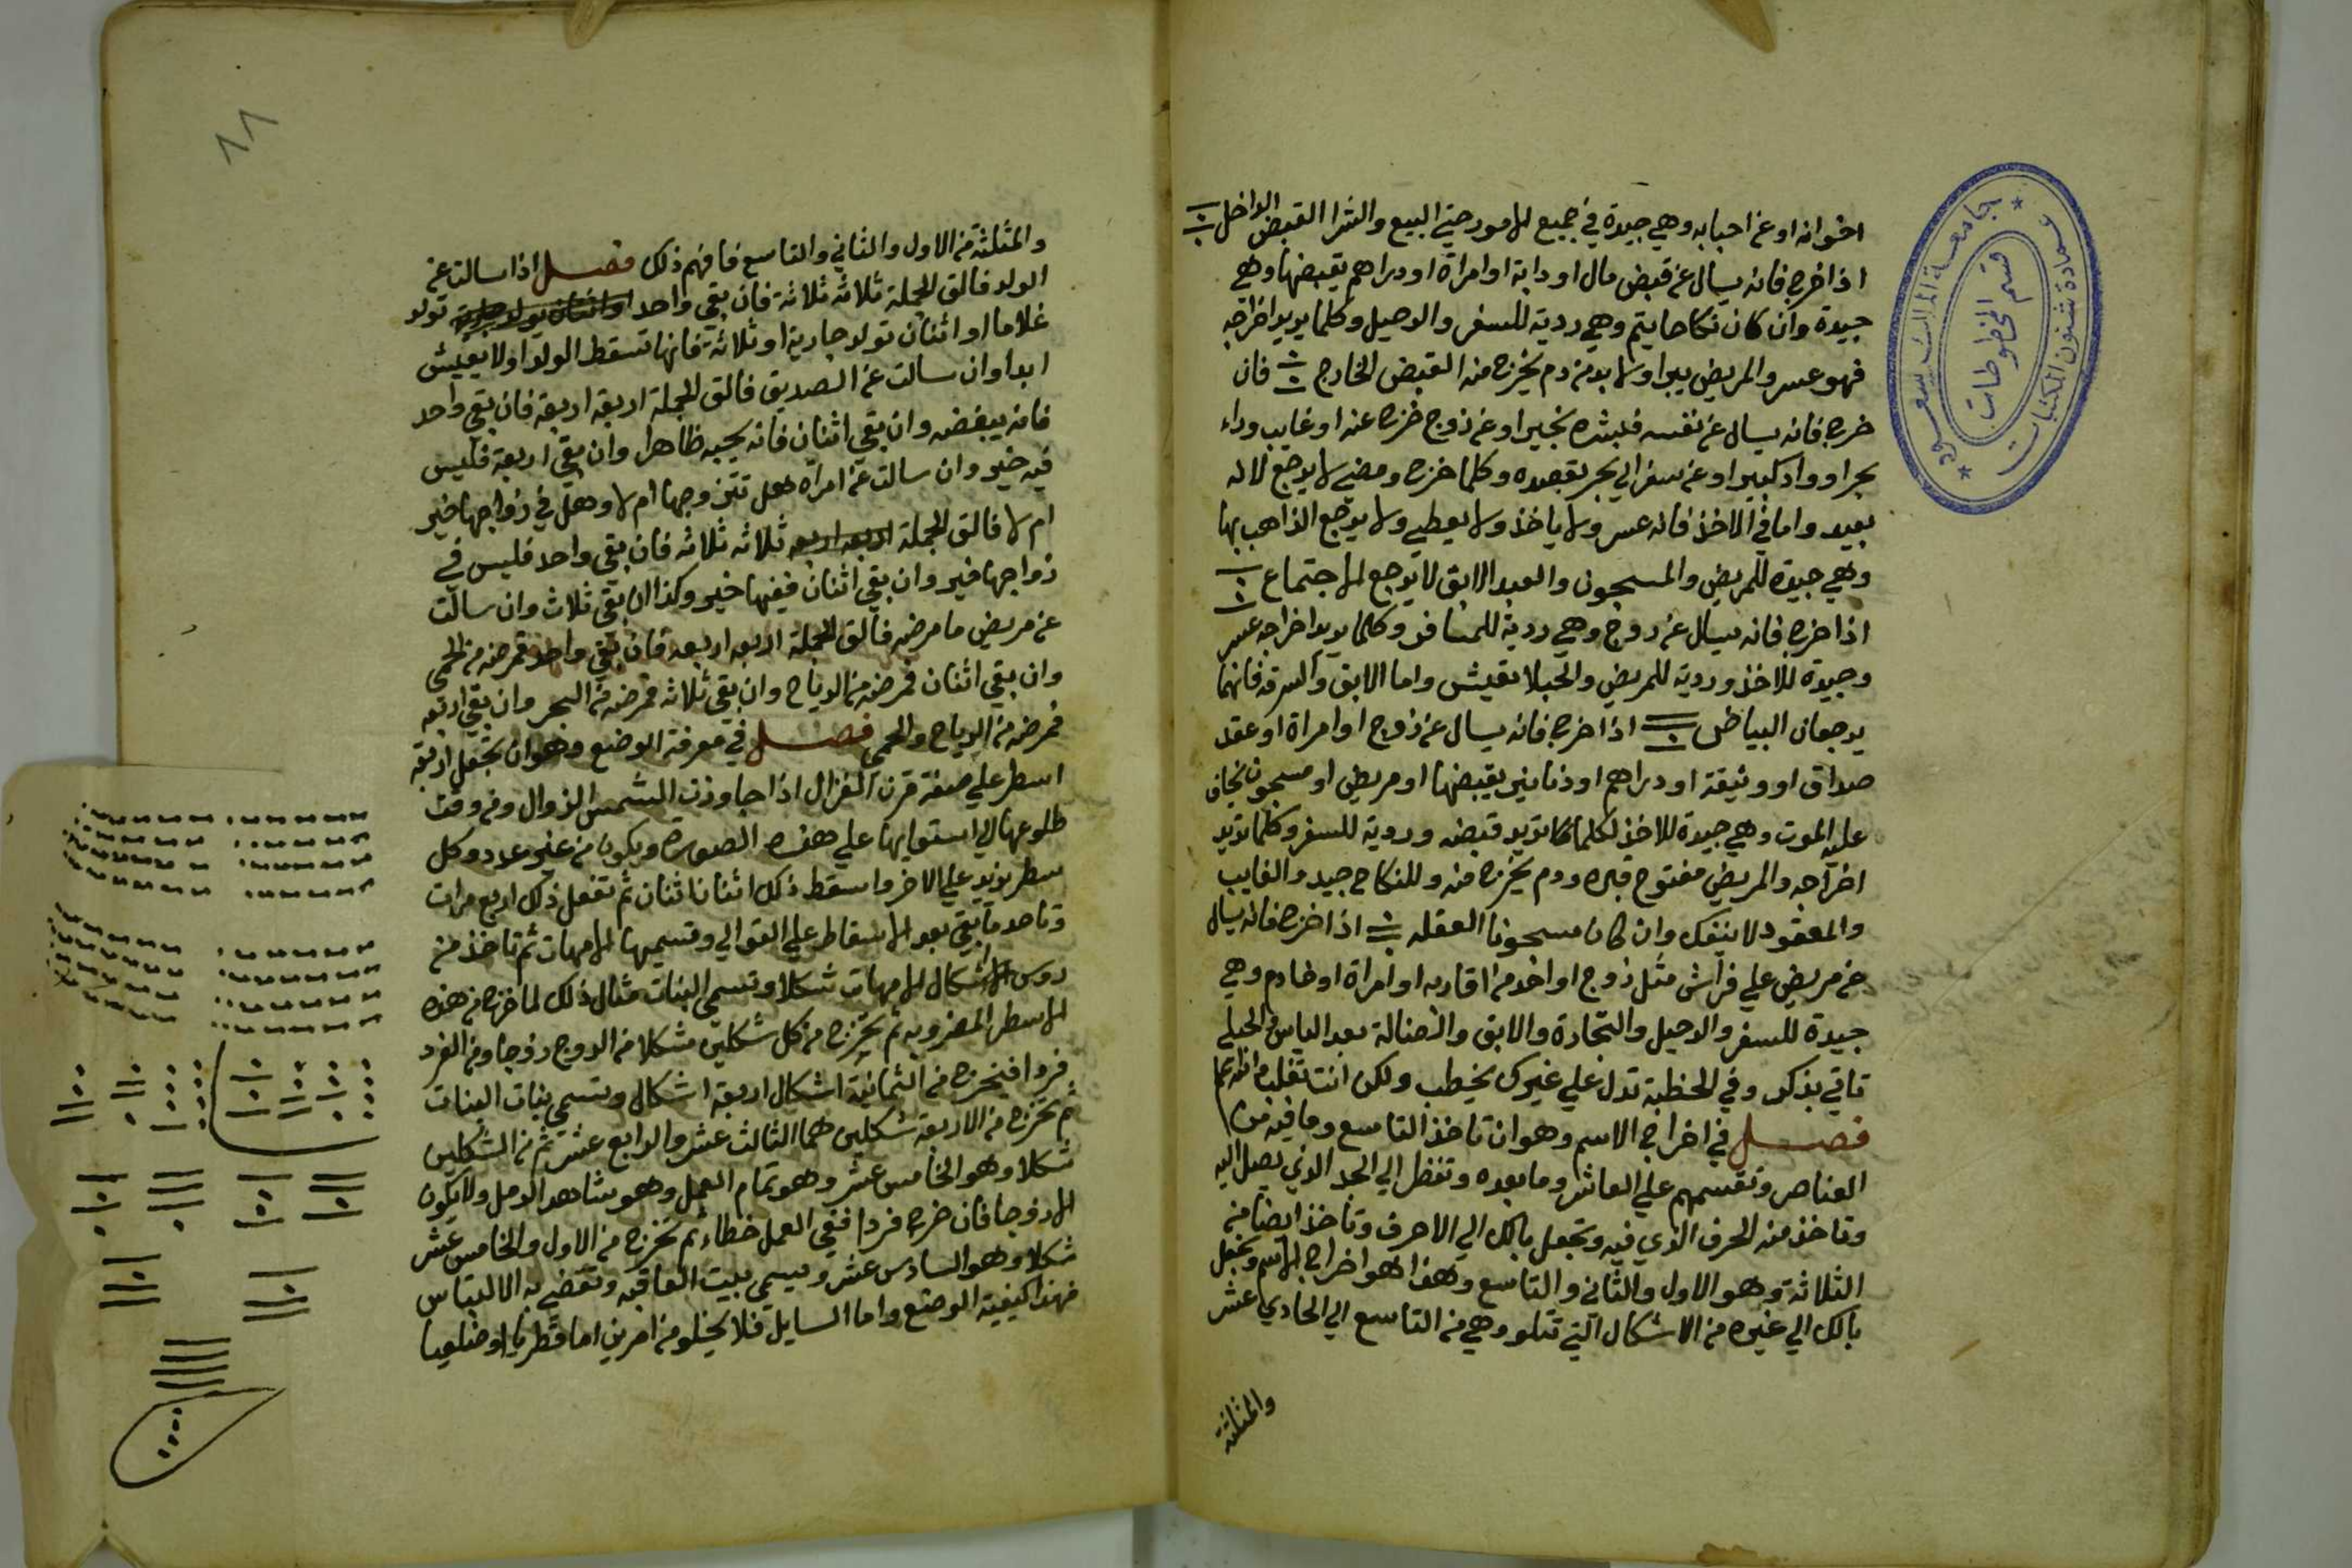 اخوانه او عن احبابه وهي جيدة في جميع الامور حتى البيع والشرا القبض الداخل
اذا خرج فانه يسال عن قبض مال او دابة او امراة او دراهم يقبضها وهي
جيدة وان كان نكاحا يتم وهي ردية للسفر والرحيل وكلما يريد اخراجه
فهو عسر والمريض يبرا ولا بد من دم يخرج منه القبض الخارج فان
خرج فانه يسال عن نفسه فبشره بخير او عن زوج خرج عنه او غايب وراء
بحر او واد كبير او عن سفر الي بحر يقصده وكلما خرج ومضي لا يرجع لانه
بعيد واما في الاخذ فانه عسر ولا ياخذ ولا يعطي ولا يرجع الذاهب بها
وهي جيدة للمريض والمسجون والعبد الابق لا يرجع الاجتماع
اذا خرج فانه يسال عن زوج وهي ردية للمسافر وكلما يريد اخراجه عسر
وجيدة للاخذ وردية للمريض والحبلا تعيش واما الابق والسرقة فانهما
يرجعان البياض اذا خرج فانه يسال عن زوج او امراة او عقد
صداق او وثيقة او دراهم او دنانير يقبضها او مريض او مسجون يخاف
عليه الموت وهي جيدة للاخذ لكلما تريد قبضه وردية للسفر وكلما تريد
اخراجه والمريض مفتوح قبره ودم يخرج منه وللنكاح جيد والغايب
والمعقود لا ينفك وان كان مسجونا العقله اذا خرج فانه يسال
عن مريض علي فراش مثل زوج او احد من اقاربه او امراة او خادم وهي
جيدة للسفر والرحيل والتجارة والابق والضالة بعد الياس والحبلي
تاتي بذكر وفي الخطبة تدل علي غيرك يخطب ولكن انت تغلب والله اعلم
فصل في اخراج الاسم وهو ان تاخذ التاسع وما فيه من
العناصر وتقسمهم علي العاشر وما بعده وتنظر الي الحد الذي يصل اليه
وتاخذ منه الحرف الذي فيه وتجعل بالك الي الاحرف وتاخذ ايضا من
الثلاثة وهو الاول والثاني والتاسع وهذا هو اخراج الاسم وتجعل
بالك الي غيره من الاشكال التي تتلو وهي من التاسع الي الحادي عشر
والمثلثة
جامعة الملك سعود
قسم المخطوطات
عمادة شئون المكتبات
والمثلثة من الاول والثاني والتاسع فافهم ذلك فصل اذا سالت عن
الولد فالق الجملة ثلاثة ثلاثة فان بقي واحد تولد
غلاما او اثنان تولد جارية او ثلاثة فانها تسقط الولد او لا يعيش
ابدا وان سالت عن الصديق فالق الجملة اربعة اربعة فان بقي واحد
فانه يبغضه وان بقي اثنان فانه يحبه ظاهرا وان بقي اربعة فليس
فيه خير وان سالت عن امراة هل تتزوجها ام لا وهل في زواجها خير
ام لا فالق الجملة اربعه اربعه ثلاثه ثلاثه فان بقي واحد فليس في
زواجها خير وان بقي اثنان ففيها خير وكذا ان بقي ثلاث وان سالت
عن مريض ما مرضه فالق الجملة اربعه اربعه فان بقي واحد فمرضه من الحمي
وان بقي اثنان فمرضه من الرياح وان بقي ثلاثه فمرضه من السحر وان بقي اربعه
فمرضه من الرياح والحمي فصل في معرفة الوضع وهو ان تجعل اربعة
اسطر علي صفة قرن الغزال اذا جاوزت الشمس الزوال ومن وقت
طلوعها الي استوايها علي هذه الصورة ويكون من غير عدد وكل
سطر يزيد علي الاخر واسقط ذلك اثنان اثنان ثم تفعل ذلك اربع مرات
وتاخذ ما بقي بعد الاسقاط علي التوالي وتسميها الامهات ثم تاخذ من
روس اشكال الامهات شكلا وتسمي البنات مثال ذلك لما خرج من هذه
الاسطر المضروبه ثم تخرج من كل شكلين شكلا من الزوج زوجا ومن الفرد
فردا فيخرج من الثمانية اشكال اربعة اشكال وتسمي بنات البنات
ثم تخرج من الاربعة شكلين هما الثالث عشر والرابع عشر ثم من الشكلين
شكلا وهو الخامس عشر وهو تمام العمل وهو شاهد الرمل ولا يكون
الا زوجا فان خرج فردا ففي العمل خطاء ثم تخرج من الاول والخامس عشر
شكلا وهو السادس عشر ويسمي ببيت العاقبه وتقضي به الالتباس
فهذا كيفية الوضع واما السايل فلا يخلو من امرين اما